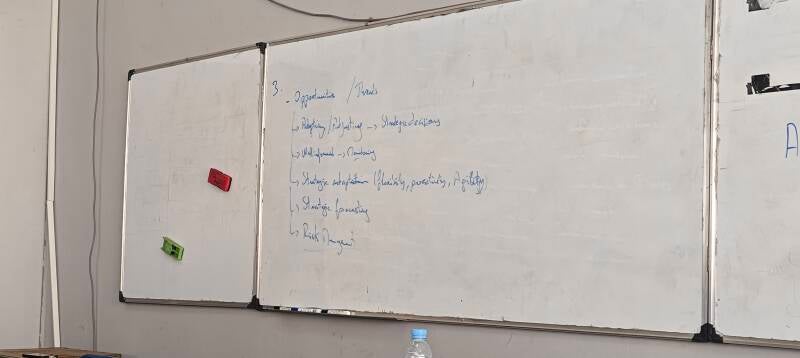 3.
- Opportunities / Threats
↳ Adapting / Adjusting → Strategic decisions
↳ Well informed → Monitoring
↳ Strategic adaptation (flexibility, proactivity, Agility)
↳ Strategic forecasting
↳ Risk Management
A